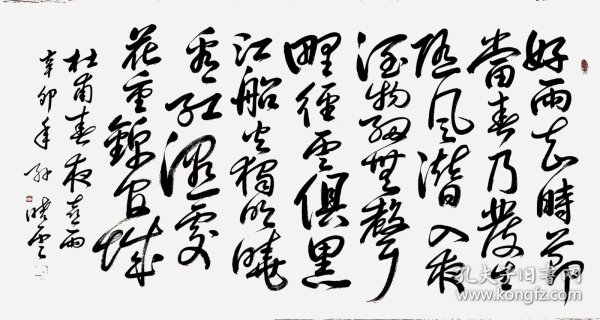 好雨知時節
當春乃發生
隨風潛入夜
潤物細無聲
野徑雲俱黑
江船火獨明曉
看紅濕處
花重錦官城
杜甫春夜喜雨
辛卯年孫曉雲
孔夫子旧书网
www.kongfz.com